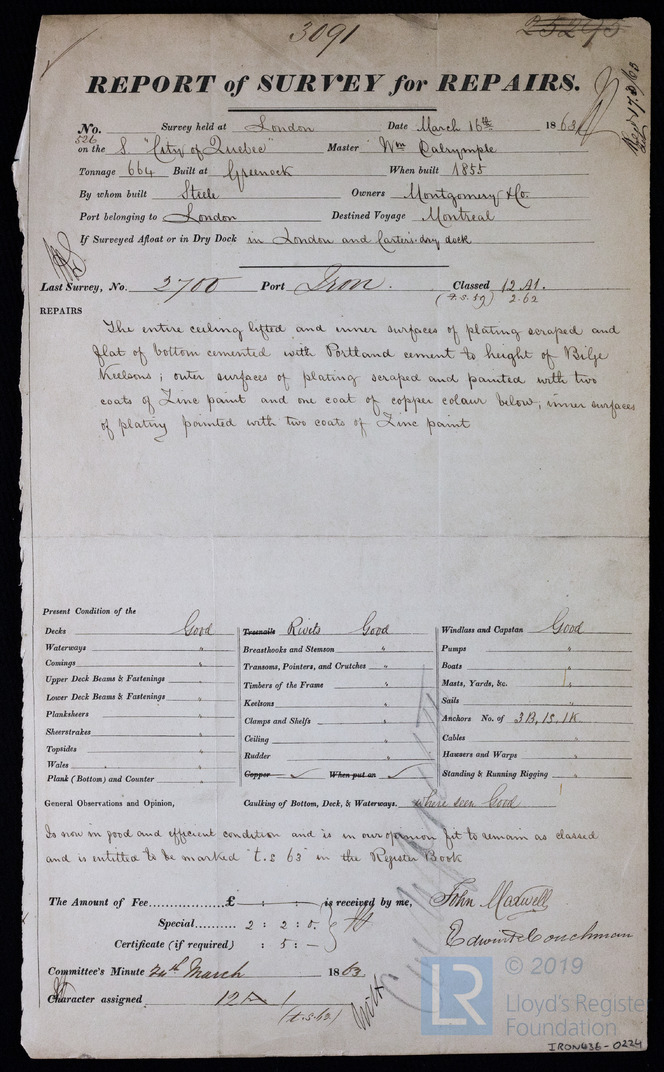 3091
25295
REPORT of SURVEY for REPAIRS.
No. 526 Survey held at London Date March 16th 1863
on the S. "City of Quebec" Master Wm Dalrymple
Tonnage 664 Built at Greenock When built 1855
By whom built Steele Owners Montgomery & Co.
Port belonging to London Destined Voyage Montreal
If Surveyed Afloat or in Dry Dock in London and Carter's dry dock
Last Survey, No. 3700 Port Iron. Classed 12 A1.
(t.s. 59) 2.62
REPAIRS
The entire ceiling lifted and inner surfaces of plating scraped and
flat of bottom cemented with Portland cement to height of Bilge
Keelsons; outer surfaces of plating scraped and painted with two
coats of Zinc paint and one coat of copper colour below; inner surfaces
of plating painted with two coats of Zinc paint
Present Condition of the
Decks Good Treenails Rivets Good Windlass and Capstan Good
Waterways " Breasthooks and Stemson " Pumps "
Comings " Transoms, Pointers, and Crutches " Boats "
Upper Deck Beams & Fastenings " Timbers of the Frame " Masts, Yards, &c. "
Lower Deck Beams & Fastenings " Keelsons " Sails "
Planksheers " Clamps and Shelfs " Anchors No. of 3B, 1S, 1K
Sheerstrakes " Ceiling " Cables "
Topsides " Rudder " Hawsers and Warps "
Wales " Copper ✓ When put on ✓ Standing & Running Rigging "
Plank (Bottom) and Counter "
General Observations and Opinion, Caulking of Bottom, Deck, & Waterways. where seen Good
Is now in good and efficient condition and is in our opinion fit to remain as classed
and is entitled to be marked "t.s 63" in the Register Book
The Amount of Fee £ : : is received by me, John Maxwell
Special 2 : 2 : 0. Edwin Couchman
Certificate (if required) : 5 : —
Committee's Minute 24th March 1863
Character assigned 12 A 1
(t.s. 63)
LR © 2019
Lloyd's Register
Foundation
IRON436-0224